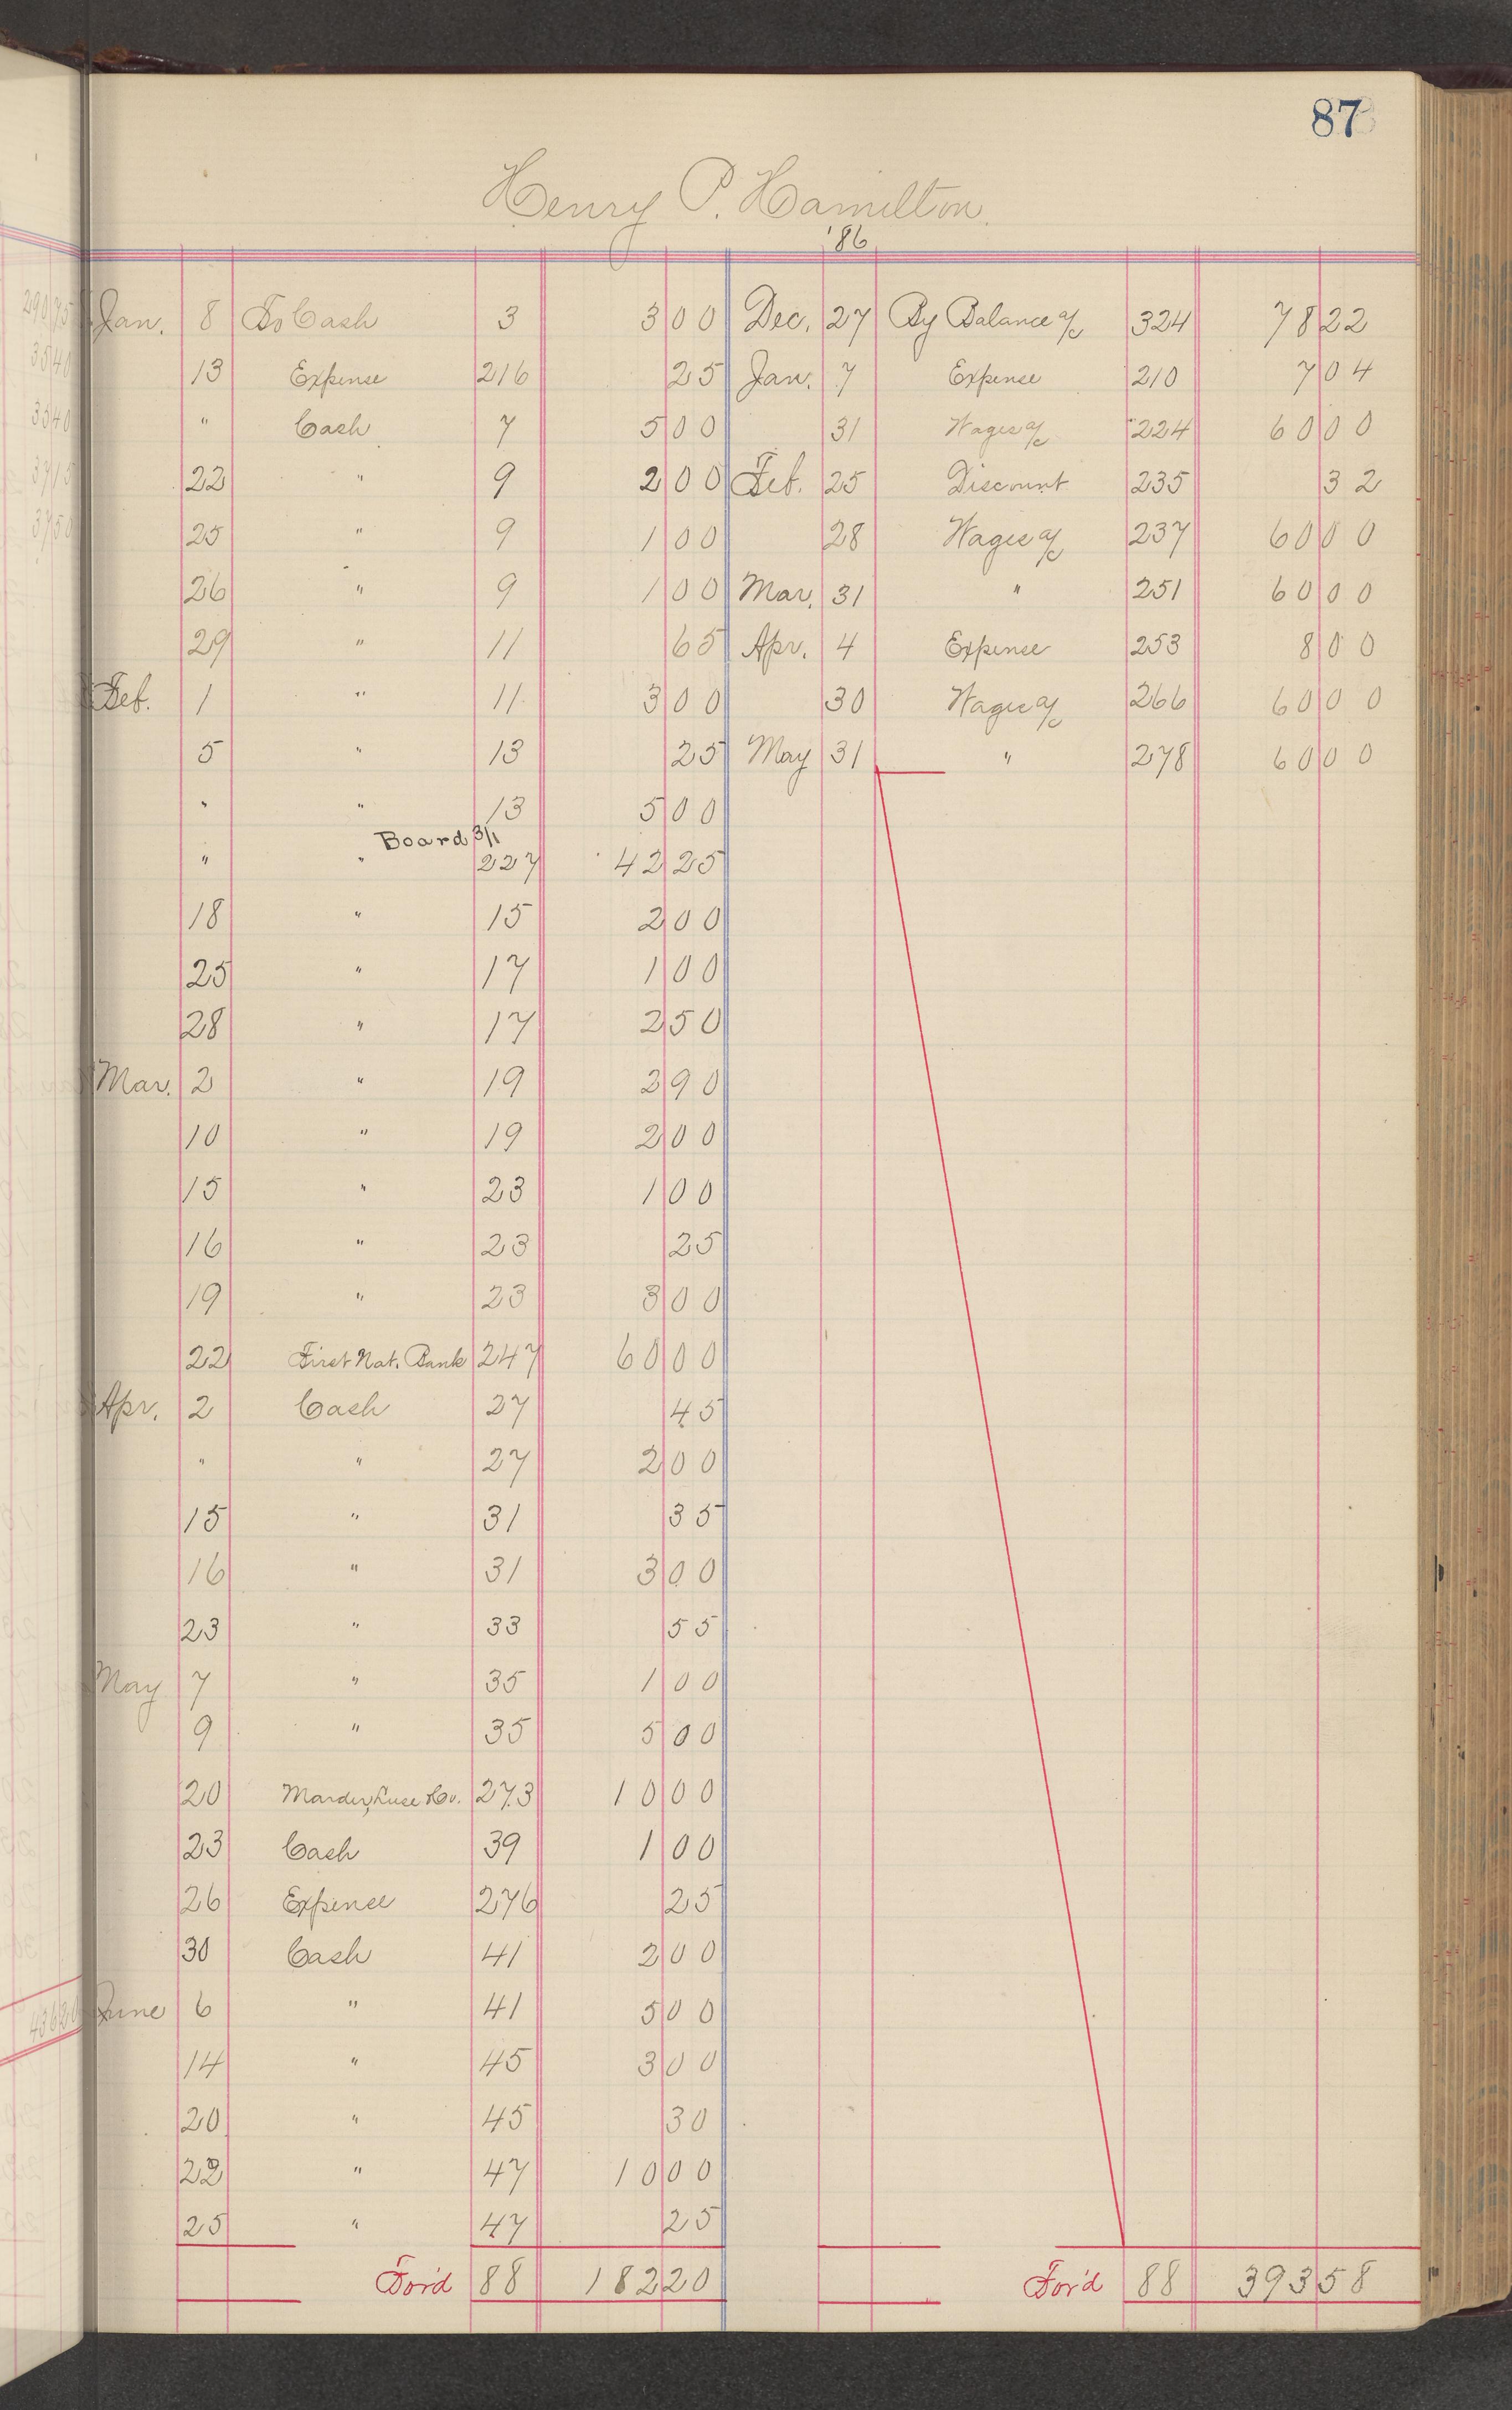 87
Henry P. Hamilton.
'86
Jan. 8 To Cash 3 3 00 Dec. 27 By Balance a/c 324 78 22
13 Expense 216 25 Jan. 7 Expense 210 7 04
" Cash 7 5 00 31 Wages a/c 224 60 00
22 " 9 2 00 Feb. 25 Discount 235 32
25 " 9 1 00 28 Wages a/c 237 60 00
26 " 9 1 00 Mar. 31 " 251 60 00
29 " 11 65 Apr. 4 Expense 253 8 00
Feb. 1 " 11 3 00 30 Wages a/c 266 60 00
5 " 13 25 May 31 " 278 60 00
" " 13 5 00
Board 3/1
" " 227 42 25
18 " 15 2 00
25 " 17 1 00
28 " 17 2 50
Mar. 2 " 19 2 90
10 " 19 2 00
15 " 23 1 00
16 " 23 25
19 " 23 3 00
22 First Nat. Bank 247 60 00
Apr. 2 Cash 27 45
" " 27 2 00
15 " 31 35
16 " 31 3 00
23 " 33 55
May 7 " 35 1 00
9 " 35 5 00
20 Marder, Luse & Co. 273 10 00
23 Cash 39 1 00
26 Expense 276 25
30 Cash 41 2 00
June 6 " 41 5 00
14 " 45 3 00
20 " 45 30
22 " 47 10 00
25 " 47 25
For'd 88 182 20 For'd 88 393 58